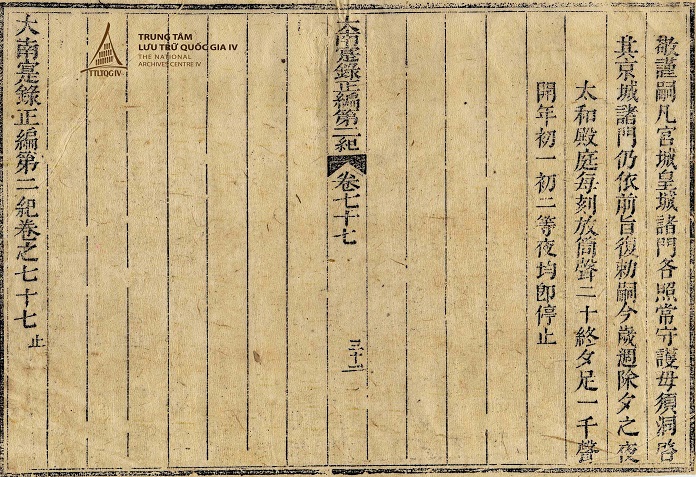 敬謹嗣凡宮城皇城諸門各照常守護毋須洞啓
其京城諸門仍依前旨復勅嗣今歲週除夕之夜
太和殿庭每刻放筒聲二十終夕足一千聲
開年初一初二等夜均即停止
大南寔錄正編第二紀 卷七十七 三十二
大南寔錄正編第二紀卷之七十七 止
TTLTQG IV
TRUNG TÂM
LƯU TRỮ QUỐC GIA IV
THE NATIONAL
ARCHIVES CENTRE IV